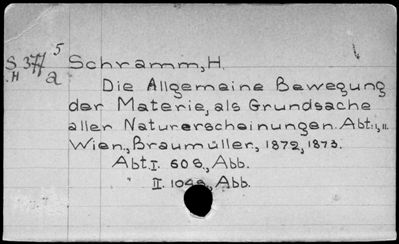 5
S 377 Schramm, H.
H a
Die Allgemeine Bewegung
der Materie, als Grundsache
aller Naturerscheinungen. Abt. I, II.
Wien., Braumüller, 1872, 1873.
Abt. I. 60 S., Abb.
" II. 104 S., Abb.